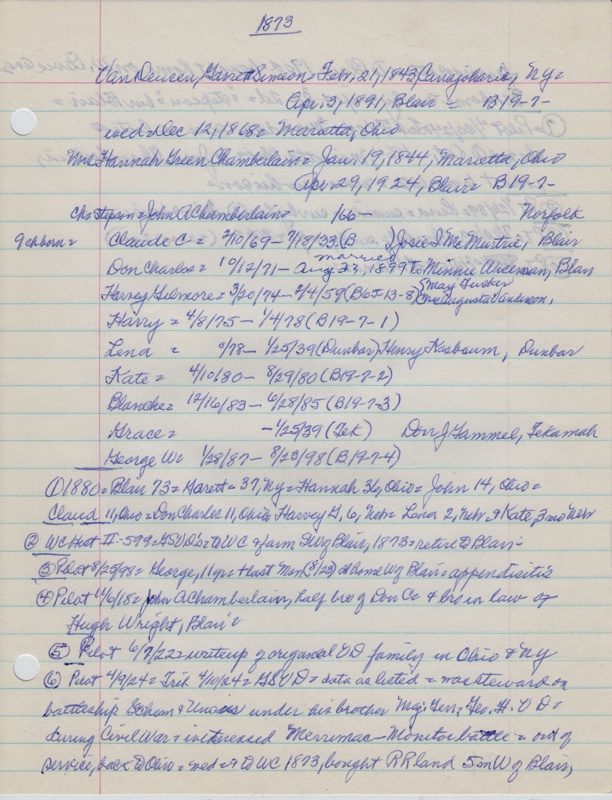 1873
Van Deusen, Garrett Simeon = Feb, 21, 1843, Canajoharie, Ny =
Apr. 3, 1891, Blair = B19-7-
wed = Dec 12, 1868 = Marietta, Ohio
Mrs Hannah Green Chamberlain = Jan. 19, 1844, Marietta, Ohio
Apr. 29, 1924, Blair = B19-7-
Chs Stepson = John A Chamberlain = 166- Norfolk
9 chborn = Claude C = 2/10/69 - 7/18/33 (B Josie I McMurtrie, Blair
Don Charles = 10/12/71 - married Aug 23, 1899 to Minnie Wieman, Blair
Harvey Gilmore = 3/20/74 - 2/4/59 (B65-13-8) May Tucker
Augusta Vandixon,
Harry = 4/8/75 - 1/4/78 (B19-7-1)
Lena = 9/78 - 1/25/39 (Dunbar) Henry Kasbaum, Dunbar
Kate = 4/10/80 - 8/29/80 (B19-7-2)
Blanche = 12/16/83 - 6/28/85 (B19-7-3)
Grace = - 1/25/39 (Tek) Don J Gammel, Tekamah
George W = 1/28/87 - 8/23/98 (B19-7-4)
① 1880 = Blair 73 = Garett = 37, Ny = Hannah 36, Ohio = John 14, Ohio =
Claud 11, Ohio = Don Charles 11, Ohio, Harvey G, 6, Neb = Lena 2, Neb, & Kate, 3 mo Neb
② WC Hist II-599 = GSVD's = to WC & farm SW of Blair, 1873 = retired to Blair =
③ Pilot 8/25/98 = George, 11 yr = last Mon (8/23) at home W of Blair = appendicitis
④ Pilot 6/6/18 = John A Chamberlain, half bro of Don C = & bro in law of
Hugh Wright, Blair =
⑤ Pilot 6/7/22 = writeup of original VD family in Ohio & Ny
⑥ Pilot 4/9/24 = Trib 4/10/24 = GSVD = data as listed = was steward on
battleship under his brother Maj. Gen. Geo. H. VD =
during Civil War = witnessed Merrimac-Monitor battle = out of
service, back to Ohio = wed = & to WC 1873, bought RR land 5 m W of Blair,